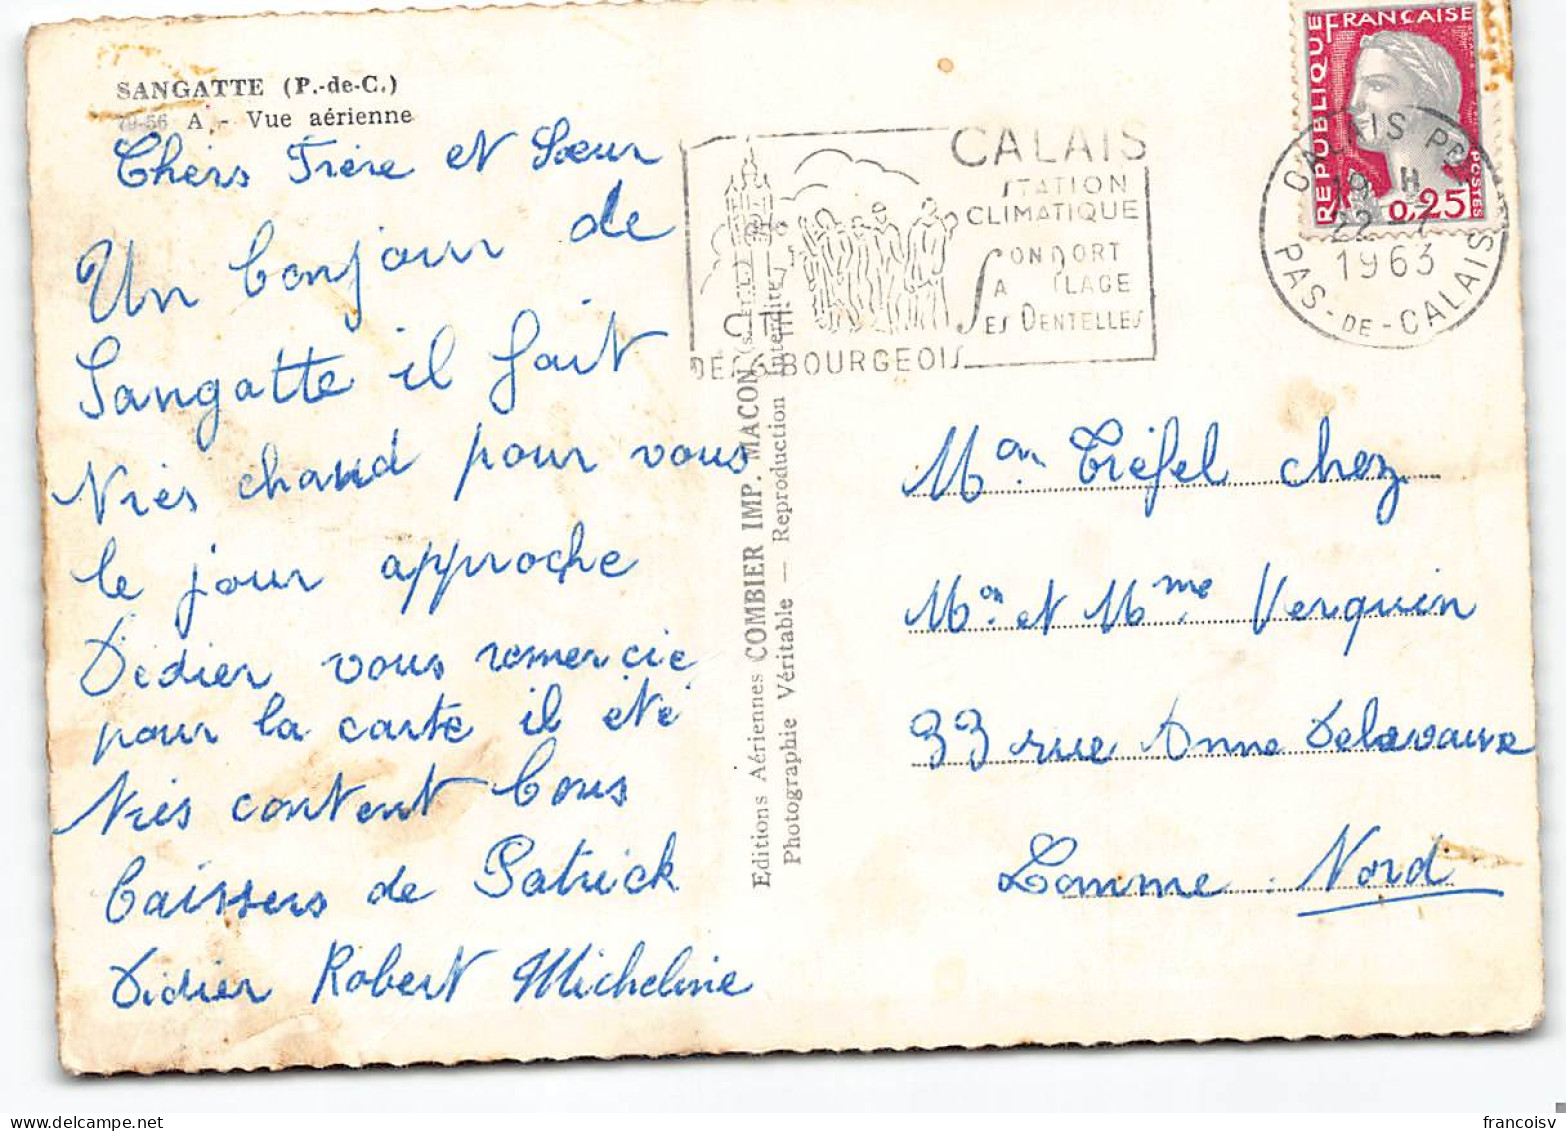 SANGATTE (P.-de-C.)
79-56 A - Vue aérienne
Chers Frère et Sœur
Un bonjour de
Sangatte il fait
très chaud pour vous
le jour approche
Didier vous remercie
pour la carte il été
très content bons
baissers de Patrick
Didier Robert Micheline
Editions Aériennes COMBIER IMP. MACON (S.-ET-L.)
Photographie Véritable — Reproduction Interdite
CALAIS
STATION
CLIMATIQUE
SON PORT
SA PLAGE
SES DENTELLES
DES 6 BOURGEOIS
REPUBLIQUE FRANÇAISE
POSTES
0,25
CALAIS PPAL
19 H
22 - 7
1963
PAS-DE-CALAIS
Mon Tiéfel chez
Mon et Mme Verquin
33 rue Anne Delavaux
Lomme. Nord
francoisv